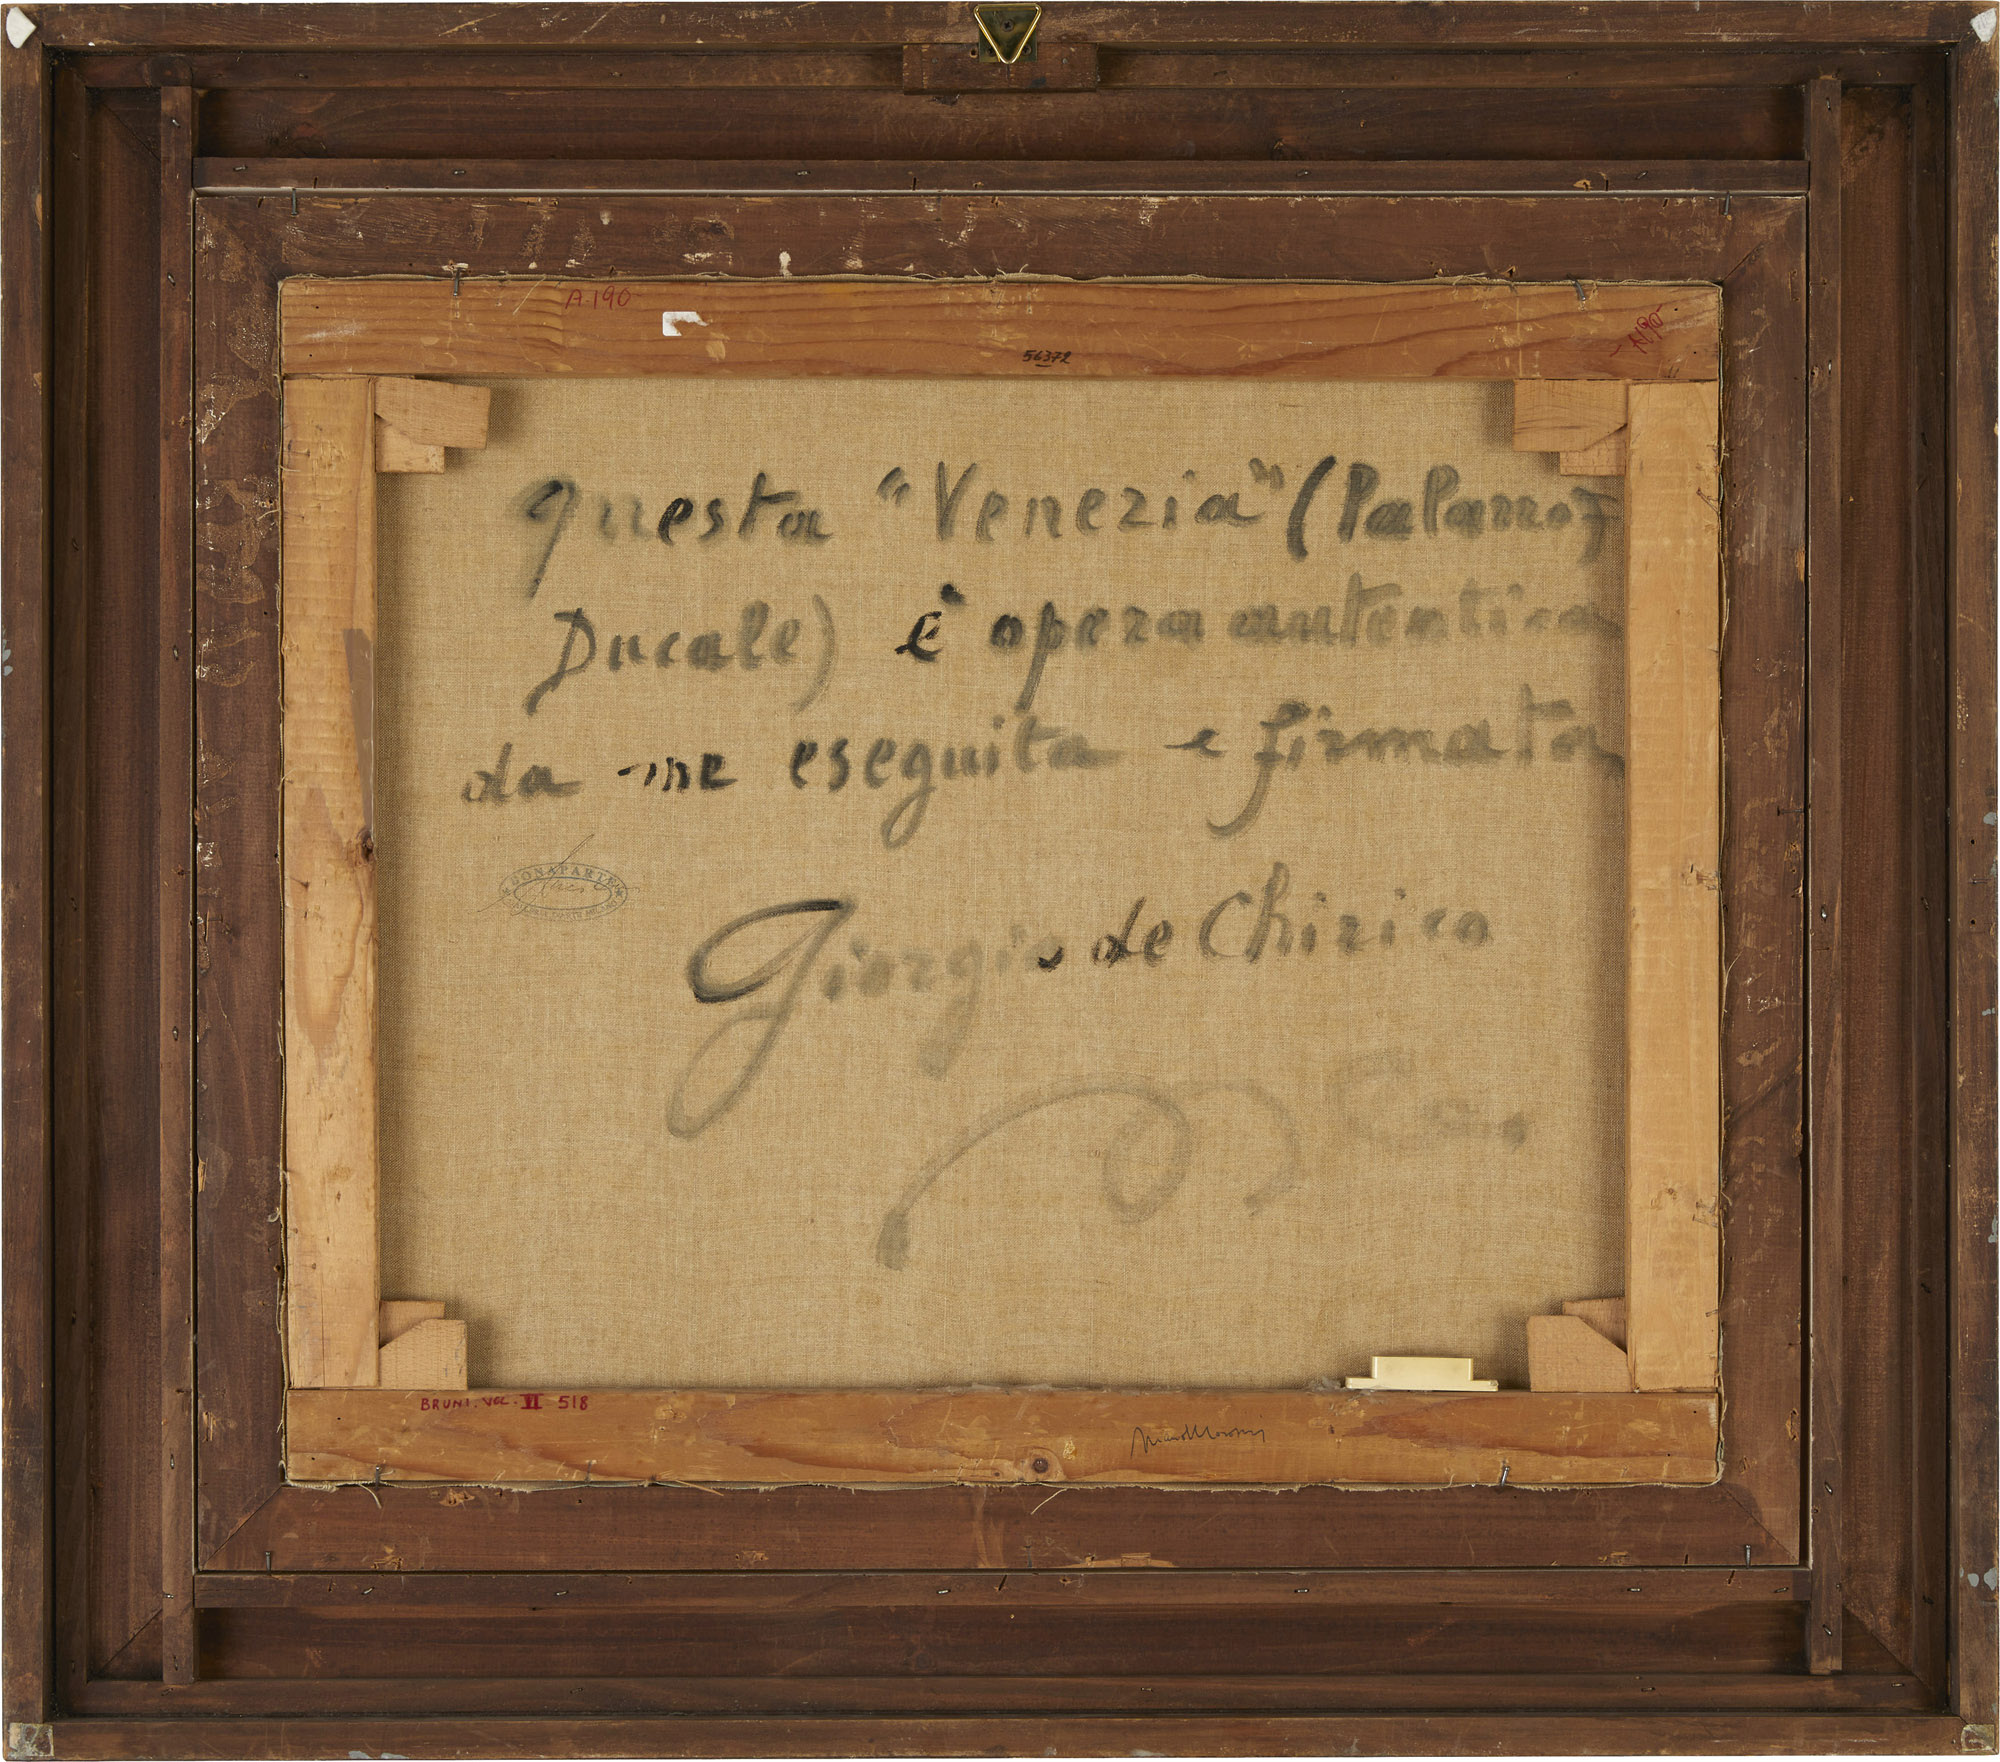 A.190
A.190
56372
questa "Venezia" (Palazzo
Ducale) è opera autentica
da me eseguita e firmata
BONAPARTE
Giorgio de Chirico
BRUNI. VOL. VI 518